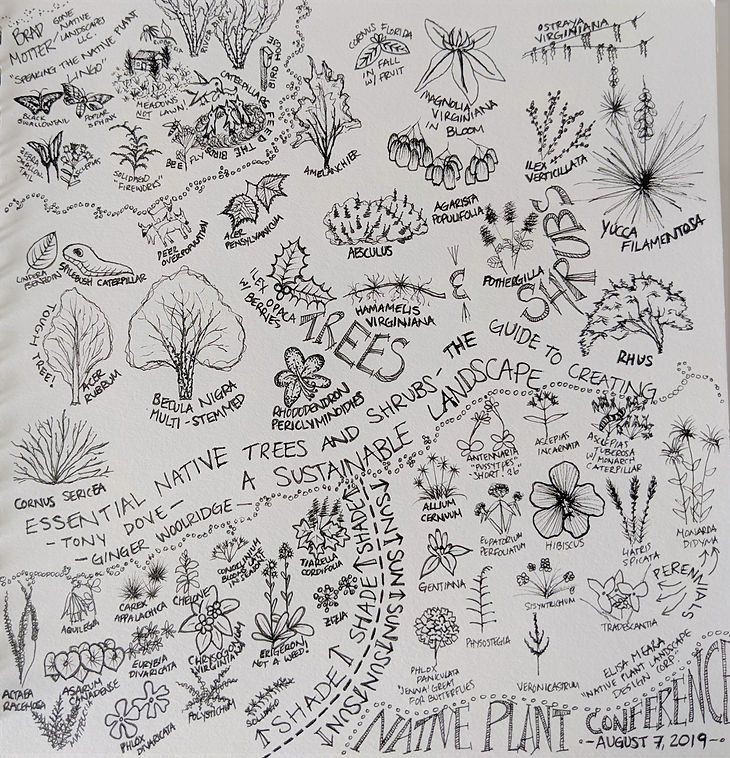 BRAD
MOTTER
GONE
NATIVE
LANDSCAPES
LLC.
"SPEAKING THE NATIVE PLANT
LINGO"
BLACK
SWALLOWTAIL
POPLAR
SPHINX
MEADOWS
NOT LAWN
CATERPILLARS
FEED THE BIRDS
RIVER
BIRD HOUSE
ZEBRA
SWALLOW
TAIL
ASCLEPIAS
SOLIDAGO
"FIREWORKS"
BEE
FLY
AMELANCHIER
CORNUS FLORIDA
IN FALL
W/ FRUIT
MAGNOLIA
VIRGINIANA
IN BLOOM
OSTRAYA
VIRGINIANA
ILEX
VERTICILLATA
YUCCA
FILAMENTOSA
DEER
OVERPOPULATION
ACER
PENSYLVANICUM
AESCULUS
AGARISTA
POPULIFOLIA
FOTHERGILLA
LINDERA
BENZOIN
SPICEBUSH CATERPILLAR
ILEX OPACA
W/ BERRIES
HAMAMELIS
VIRGINIANA
TREES
&
SHRUBS
RHUS
TOUGH TREE!
ACER
RUBRUM
BECULA NIGRA
MULTI-STEMMED
RHODODENDRON
PERICLYMINOIDIES
CORNUS SERICEA
ESSENTIAL NATIVE TREES AND SHRUBS - THE GUIDE TO CREATING
A SUSTAINABLE LANDSCAPE
- TONY DOVE -
- GINGER WOOLRIDGE -
ANTENNARIA
"PUSSYTOES"
ASCLEPIAS
INCARNATA
ASCLEPIAS
TUBEROSA
W/ MONARCH
CATERPILLAR
ALLIUM
CERNUUM
EUPATORIUM
PERFOLIATUM
HIBISCUS
LIATRIS
SPICATA
MONARDA
DIDYMA
PERENNIALS
GENTIANA
PHYSOSTEGIA
SISYNTRICHUM
TRADESCANTIA
PHLOX
PANICULATA
'JENNA' GREAT
FOR BUTTERFLIES
VERONICASTRUM
ACTAEA
RACEMOSA
AQUILEGIA
CAREX
APPALACHICA
CHELONE
CONOCLINIUM
BLOOMS LATE
IN SEASON
TIARELLA
CORDIFOLIA
ZIZIA
ERIGERON
NOT A WEED!
ASARUM
CANADENSE
EURYBIA
DIVARICATA
CHRYSOGONUM
VIRGINIANUM
MATTEUCCIA
PHLOX
DIVARICATA
POLYSTICHUM
SOLIDAGO
↑ SHADE ↑ SHADE ↑ SHADE ↑ SHADE
↓ SUN ↓ SUN ↓ SUN ↓ SUN ↓ SUN
ELISA MEARA
"NATIVE PLANT LANDSCAPE
DESIGN CORP."
NATIVE PLANT CONFERENCE
- AUGUST 7, 2019 -